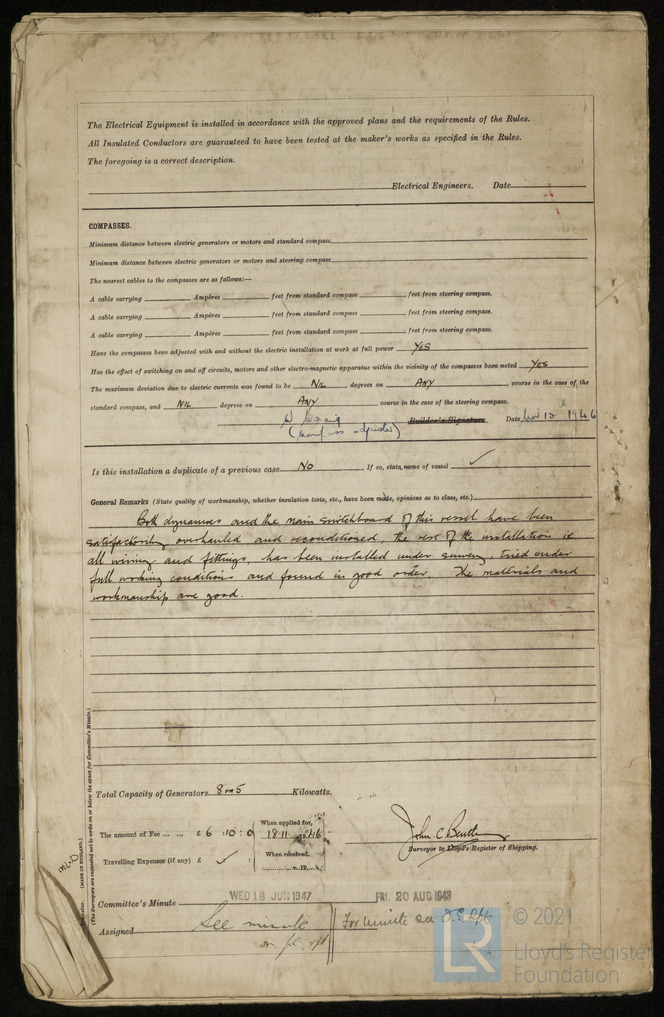 The Electrical Equipment is installed in accordance with the approved plans and the requirements of the Rules.
All Insulated Conductors are guaranteed to have been tested at the maker's works as specified in the Rules.
The foregoing is a correct description.
Electrical Engineers. Date
COMPASSES.
Minimum distance between electric generators or motors and standard compass
Minimum distance between electric generators or motors and steering compass
The nearest cables to the compasses are as follows:—
A cable carrying Ampères feet from standard compass feet from steering compass.
A cable carrying Ampères feet from standard compass feet from steering compass.
A cable carrying Ampères feet from standard compass feet from steering compass.
Have the compasses been adjusted with and without the electric installation at work at full power YES
Has the effect of switching on and off circuits, motors and other electro-magnetic apparatus within the vicinity of the compasses been noted YES
The maximum deviation due to electric currents was found to be NIL degrees on ANY course in the case of the
standard compass, and NIL degrees on ANY course in the case of the steering compass.
Builder's Signature. Date Nov 15th 1946
(compass adjuster)
Is this installation a duplicate of a previous case NO If so, state name of vessel ✓
General Remarks (State quality of workmanship, whether insulation tests, etc., have been made, opinions as to class, etc.)
Both dynamos and the main switchboard of this vessel have been
satisfactorily overhauled and reconditioned, the rest of the installation ie
all wiring and fittings, has been installed under survey, tried under
full working conditions and found in good order. The materials and
workmanship are good.
Total Capacity of Generators Kilowatts.
The amount of Fee ... ... £ 6 : 10 : 0
When applied for,
18.11.1946
Travelling Expenses (if any) £ ✓ :
When received,
19
John C
Surveyor to Lloyd's Register of Shipping.
Committee's Minute WED 18 JUN 1947 FRI. 20 AUG 1948
Assigned See minute
For minute see
(MADE IN ENGLAND.)
(The Surveyors are requested not to write on or below the space for Committee's Minute.)
© 2021
LR
Lloyd's Register
Foundation